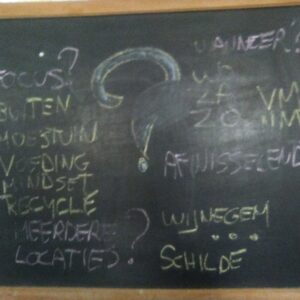 FOCUS?
BUITEN
MOESTUIN
VOEDING
MINDSET
RECYCLE
MEERDERE
LOCATIES?
?
WANNEER?
WD
ZA VM
ZO NM
AFWISSELEND
WIJNEGEM
...
SCHILDE